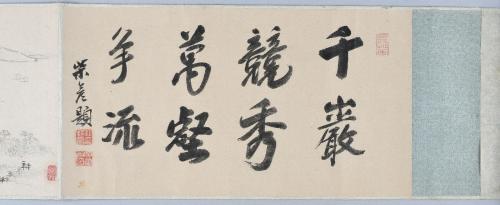 千巖
競秀
萬壑
爭流
榮彥題